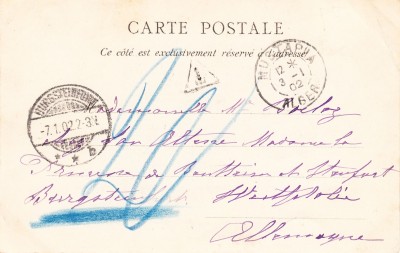 CARTE POSTALE
Ce côté est exclusivement réservé à l'adresse
MUSTAPHA
12
3 -1
02
ALGER
BURGSTEINFURT
-7.1.02.2-3
b
Mademoiselle M
Son Altesse Madame la
Princesse de Bentheim et Steinfurt
Burgsteinfurt
Westphalie
Allemagne
20